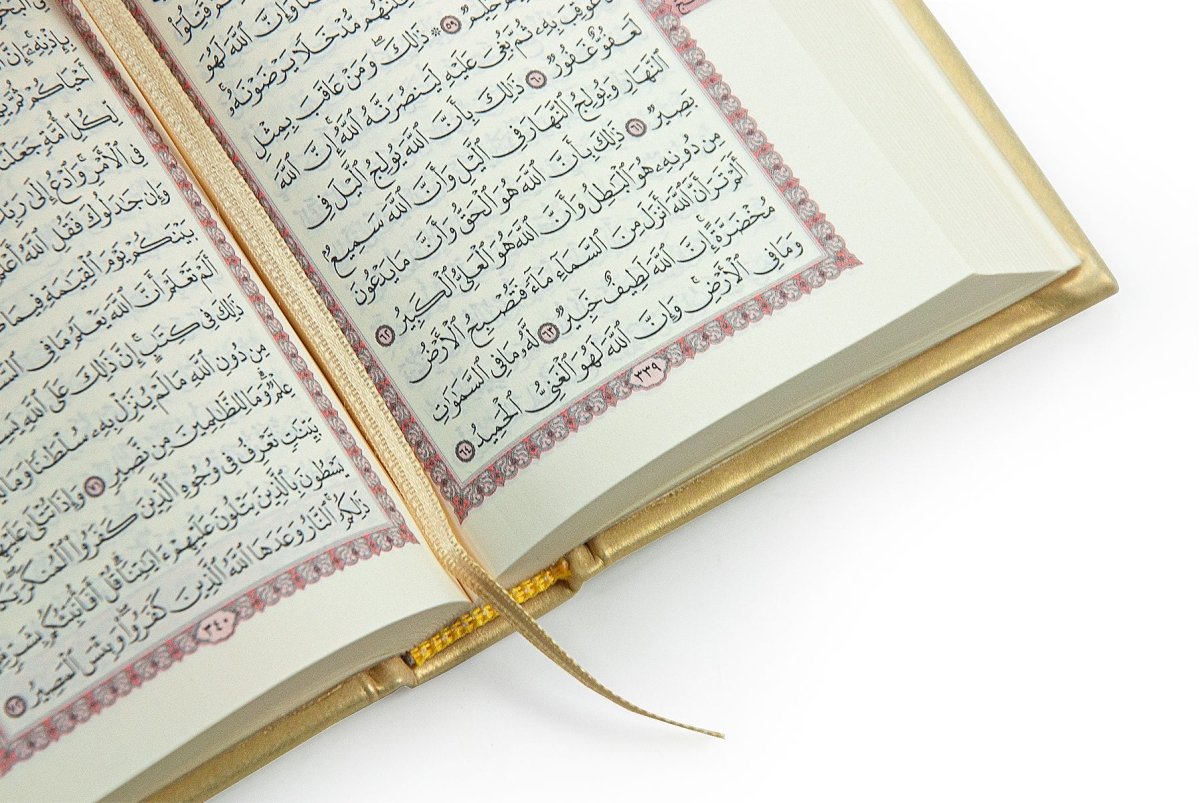 قُتِلُوٓا۟
وَإِنَّ ٱللَّهَ لَهُوَ
مُّدْخَلًا يَرْضَوْنَهُۥ
حَلِيمٌ ٥٩ ۞ ذَٰلِكَ وَمَنْ عَاقَبَ بِمِثْلِ
عُوقِبَ بِهِۦ ثُمَّ بُغِىَ عَلَيْهِ لَيَنصُرَنَّهُ ٱللَّهُ إِنَّ ٱللَّهَ
لَعَفُوٌّ غَفُورٌ ٦٠ ذَٰلِكَ بِأَنَّ ٱللَّهَ يُولِجُ ٱلَّيْلَ فِى
ٱلنَّهَارِ وَيُولِجُ ٱلنَّهَارَ فِى ٱلَّيْلِ وَأَنَّ ٱللَّهَ سَمِيعٌۢ
بَصِيرٌ ٦١ ذَٰلِكَ بِأَنَّ ٱللَّهَ هُوَ ٱلْحَقُّ وَأَنَّ مَا يَدْعُونَ
مِن دُونِهِۦ هُوَ ٱلْبَٰطِلُ وَأَنَّ ٱللَّهَ هُوَ ٱلْعَلِىُّ ٱلْكَبِيرُ ٦٢
أَلَمْ تَرَ أَنَّ ٱللَّهَ أَنزَلَ مِنَ ٱلسَّمَآءِ مَآءً فَتُصْبِحُ ٱلْأَرْضُ
مُخْضَرَّةً إِنَّ ٱللَّهَ لَطِيفٌ خَبِيرٌ ٦٣ لَّهُۥ مَا فِى ٱلسَّمَٰوَٰتِ
وَمَا فِى ٱلْأَرْضِ وَإِنَّ ٱللَّهَ لَهُوَ ٱلْغَنِىُّ ٱلْحَمِيدُ ٦٤
٣٣٩
بِإِذْنِهِۦٓ إِنَّ
أَحْيَاكُمْ ثُمَّ
لِّكُلِّ أُمَّةٍ جَعَلْنَا
فِى ٱلْأَمْرِ وَٱدْعُ إِلَىٰ رَبِّكَ
وَإِن جَٰدَلُوكَ فَقُلِ ٱللَّهُ
بَيْنَكُمْ يَوْمَ ٱلْقِيَٰمَةِ فِيمَا
أَلَمْ تَعْلَمْ أَنَّ ٱللَّهَ يَعْلَمُ مَا فِى
ذَٰلِكَ فِى كِتَٰبٍ إِنَّ ذَٰلِكَ عَلَى ٱللَّهِ
مِن دُونِ ٱللَّهِ مَا لَمْ يُنَزِّلْ بِهِۦ سُلْطَٰنًا وَمَا
عِلْمٌ وَمَا لِلظَّٰلِمِينَ مِن نَّصِيرٍ ٧١ وَإِذَا تُتْلَىٰ عَلَيْهِمْ
بَيِّنَٰتٍ تَعْرِفُ فِى وُجُوهِ ٱلَّذِينَ كَفَرُوا۟ ٱلْمُنكَرَ
يَسْطُونَ بِٱلَّذِينَ يَتْلُونَ عَلَيْهِمْ ءَايَٰتِنَا قُلْ أَفَأُنَبِّئُكُم بِشَرٍّ
ذَٰلِكُمُ ٱلنَّارُ وَعَدَهَا ٱللَّهُ ٱلَّذِينَ كَفَرُوا۟ وَبِئْسَ ٱلْمَصِيرُ ٧٢
٣٤٠